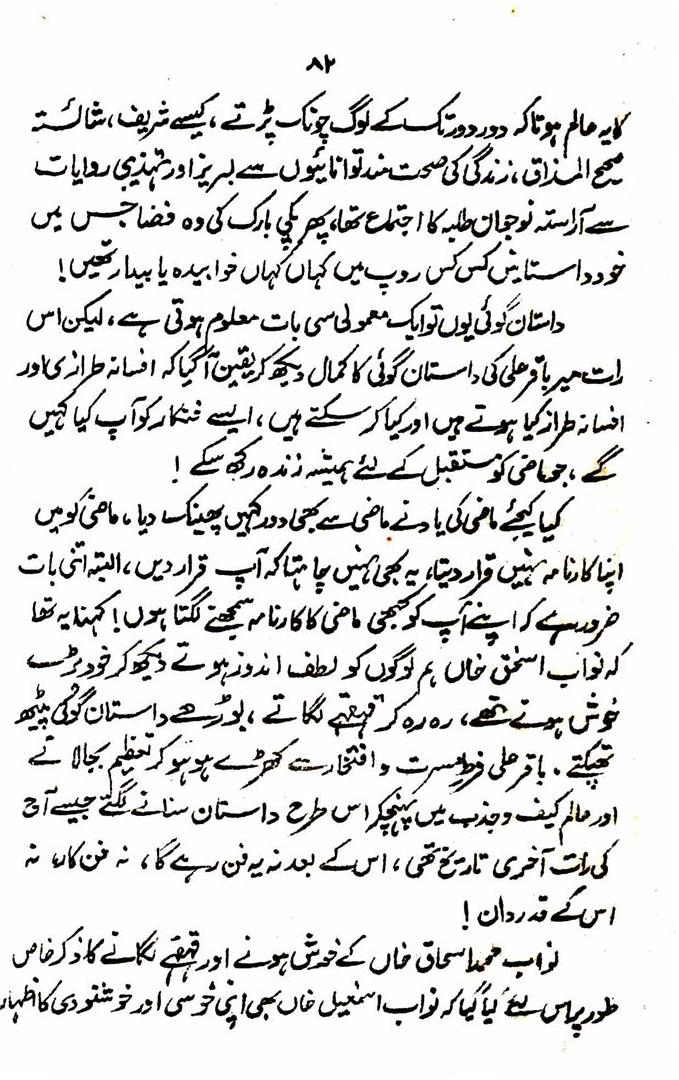 ۸۲
کا یہ عالم ہوتا کہ دور دور تک کے لوگ چونک پڑتے ، کیسے شریف ، شائستہ
صحیح المذاق ، زندگی کی صحت مند توانائیوں سے لبریز اور تہذیبی روایات
سے آراستہ نوجوان طلبہ کا اجتماع تھا ، پھر پکی بارک کی وہ فضا جس میں
خود داستانیں کس کس روپ میں کہاں کہاں خوابیدہ یا بیدار تھیں !
داستان گوئی یوں تو ایک معمولی سی بات معلوم ہوتی ہے ، لیکن اس
رات میر باقر علی کی داستان گوئی کا کمال دیکھ کر یقین آ گیا کہ افسانہ طرازی اور
افسانہ طراز کیا ہوتے ہیں اور کیا کر سکتے ہیں ، ایسے فنکار کو آپ کیا کہیں
گے ، جو ماضی کو مستقبل کے لئے ہمیشہ زندہ رکھ سکے !
کیا کیجئے ماضی کی یاد نے ماضی سے بھی دور کہیں پھینک دیا ، ماضی کو میں
اپنا کارنامہ نہیں قرار دیتا ، یہ بھی نہیں چاہتا کہ آپ قرار دیں ، البتہ اتنی بات
ضرور ہے کہ اپنے آپ کو کبھی ماضی کا کارنامہ سمجھنے لگتا ہوں ! کہنا یہ تھا
کہ نواب اسحٰق خاں ہم لوگوں کو لطف اندوز ہوتے دیکھ کر خود بڑے
خوش ہوتے تھے ، رہ رہ کر قہقہے لگاتے ، بوڑھے داستان گو کی پیٹھ
تھپکتے . باقر علی فرط مسرت و افتخار سے کھڑے ہو ہو کر تعظیم بجا لاتے
اور عالم کیف و جذب میں پہنچکر اس طرح داستان سنانے لگتے جیسے آج
کی رات آخری تاریخ تھی ، اس کے بعد نہ یہ فن رہے گا ، نہ فن کار ، نہ
اس کے قدردان !
نواب محمد اسحاق خاں کے خوش ہونے اور قہقہے لگانے کا ذکر خاص
طور پر اس لئے کیا گیا کہ نواب اسمٰعیل خاں بھی اپنی خوشی اور خوشنودی کا اظہار